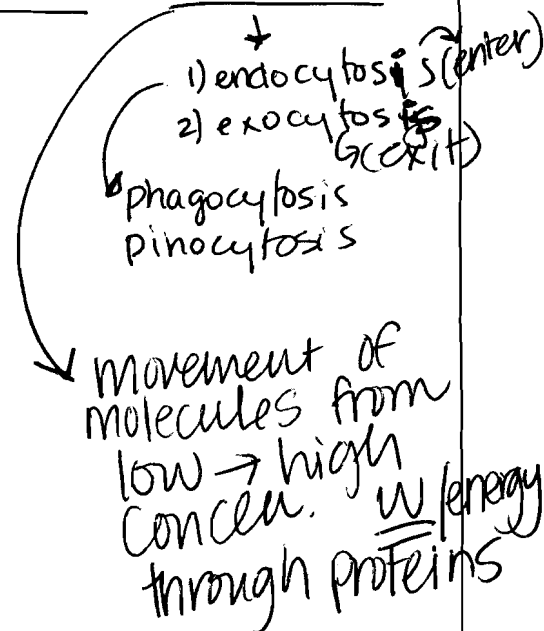 1) endocytosis (enter)
2) exocytosis
(exit)
phagocytosis
pinocytosis
movement of
molecules from
low → high
concen. w/energy
through proteins